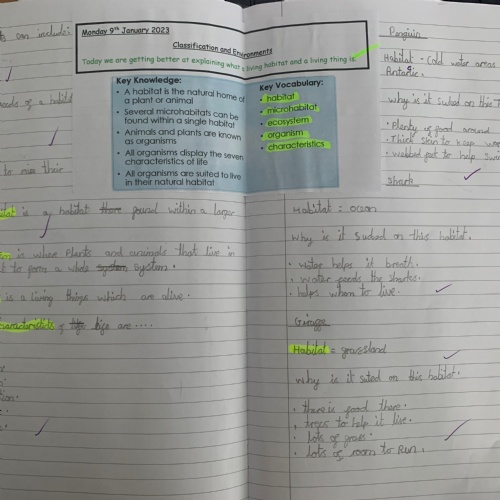 Monday 9th January 2023
Classification and Environments
Today we are getting better at explaining what a living habitat and a living thing is.
Key Knowledge:
• A habitat is the natural home of a plant or animal
• Several microhabitats can be found within a single habitat
• Animals and plants are known as organisms
• All organisms display the seven characteristics of life
• All organisms are suited to live in their natural habitat
Key Vocabulary:
• habitat
• microhabitat
• ecosystem
• organism
• characteristics
can include:
of a habitat
to mas their
is a habitat found within a larger
is where Plants and animals that live in
to form a whole system.
is a living things which are alive.
characteristics of life are ....
Penguin
Habitat - Cold water areas
Antartic.
why is it suted on this
• Plenty of good around
• Thick skin to keep
• webbed feet to help swim
Shark
Habitat = ocean
Why is it suted on this habitat.
• water helps it breath.
• water feeds the sharks.
• helps them to live.
Giraffe
Habitat = grassland
Why is it suted on this habitat.
• there is good there.
• trees to help it live.
• lots of grass.
• lots of room to run.